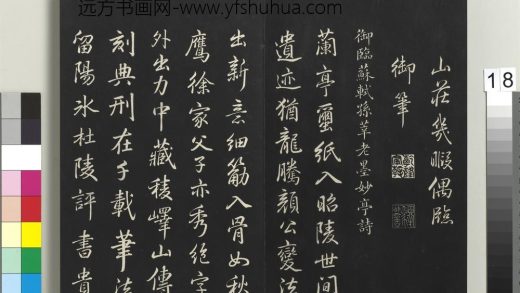 远方书画网-www.yfshuhua.com
18
山莊幾暇偶臨
御筆
御臨蘇軾孫莘老墨妙亭詩
蘭亭繭紙入昭陵世間
遺迹猶龍騰顏公變法
出新意細筋入骨如秋
鷹徐家父子亦秀絶字
外出力中藏稜嶧山傳
刻典刑在千載筆法
留陽冰杜陵評書貴